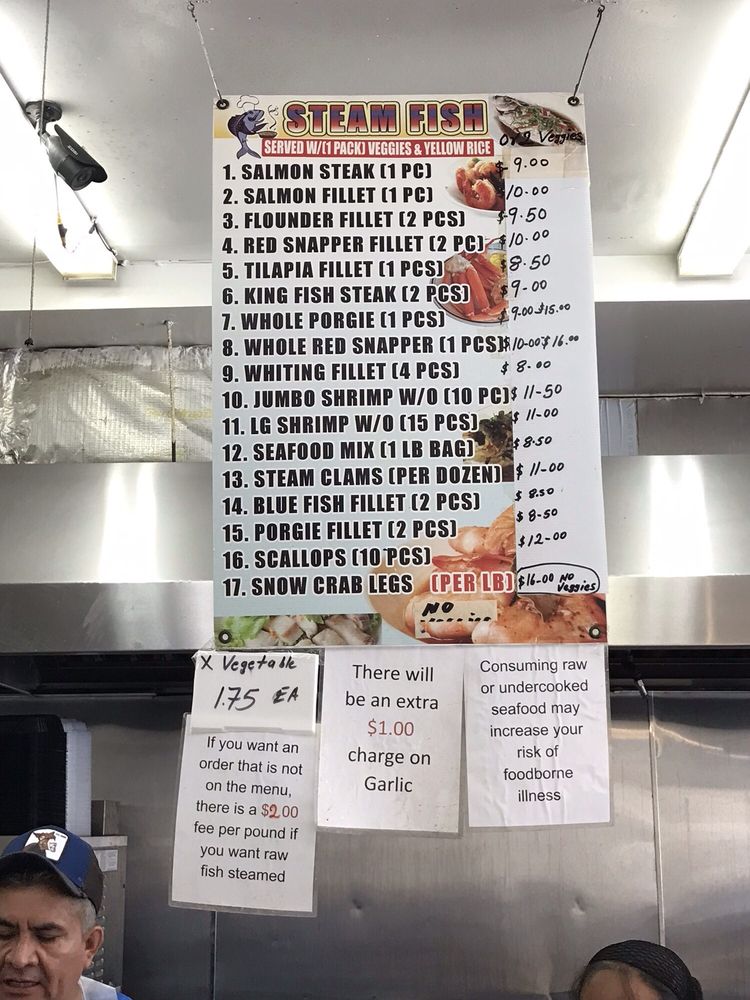 STEAM FISH
SERVED W/(1 PACK) VEGGIES & YELLOW RICE
Or 2 Veggies
1. SALMON STEAK (1 PC) $ 9.00
2. SALMON FILLET (1 PC) 10.00
3. FLOUNDER FILLET (2 PCS) $9.50
4. RED SNAPPER FILLET (2 PC) $10.00
5. TILAPIA FILLET (1 PCS) $8.50
6. KING FISH STEAK (2 PCS) $9-00
7. WHOLE PORGIE (1 PCS) $9.00-$15.00
8. WHOLE RED SNAPPER (1 PCS) $10-00 $16.00
9. WHITING FILLET (4 PCS) $8-00
10. JUMBO SHRIMP W/O (10 PC) $11-50
11. LG SHRIMP W/O (15 PCS) $11-00
12. SEAFOOD MIX (1 LB BAG) $8-50
13. STEAM CLAMS (PER DOZEN) $11-00
14. BLUE FISH FILLET (2 PCS) $8.50
15. PORGIE FILLET (2 PCS) $8-50
16. SCALLOPS (10 PCS) $12-00
17. SNOW CRAB LEGS (PER LB) $16-00 NO Veggies
NO
X Vegetable
1.75 EA
If you want an
order that is not
on the menu,
there is a $2.00
fee per pound if
you want raw
fish steamed
There will
be an extra
$1.00
charge on
Garlic
Consuming raw
or undercooked
seafood may
increase your
risk of
foodborne
illness